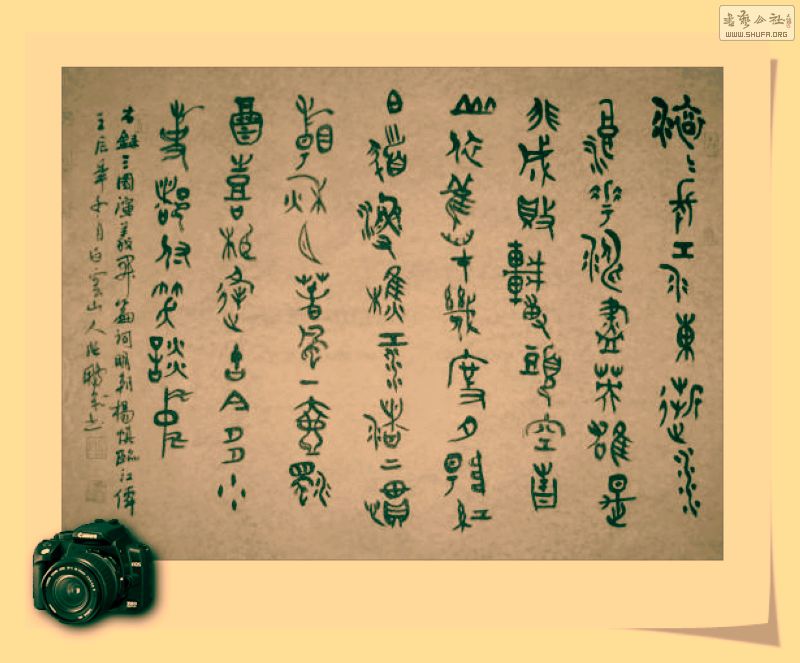 滾〻長江東逝水
浪花淘盡英雄是
非成敗轉頭空青
山依舊在幾度夕陽紅
白髮漁樵江渚上慣
看秋月春風一壺濁
酒喜相逢古今多少
事都付笑談中
右録三國演義開篇詞明朝楊慎臨江僊
壬辰年月白雲山人鵬書
書藝公社
WWW.SHUFA.ORG
Canon